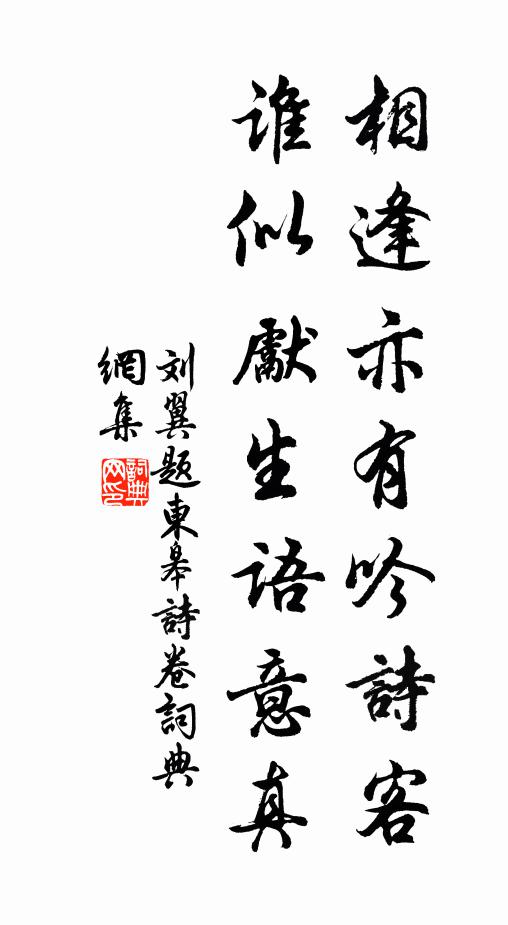 相逢亦有吟詩客
谁似獻生語意真
刘翼题東皋詩卷詞典
網集
詞典
网印